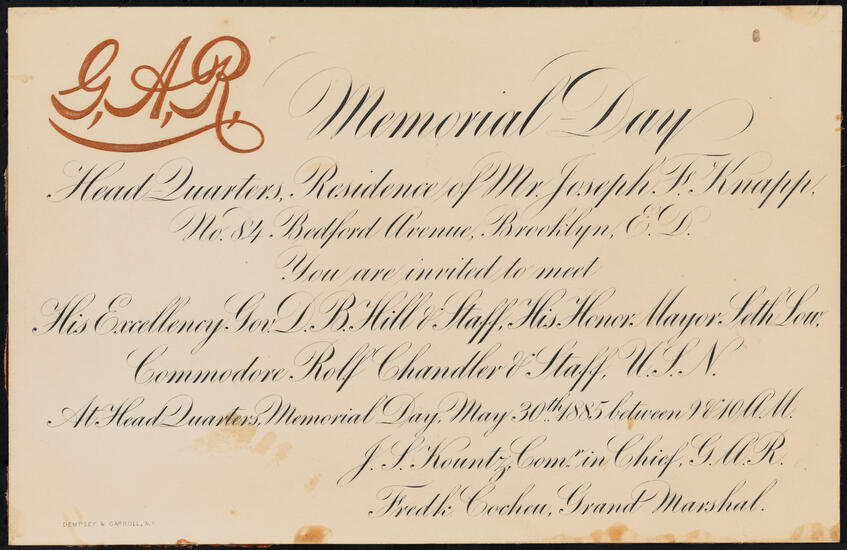 G.A.R.
Memorial Day
Head Quarters, Residence of Mr. Joseph F. Knapp,
No. 84 Bedford Avenue, Brooklyn, E.D.
You are invited to meet
His Excellency Gov. D. B. Hill & Staff, His Honor Mayor Seth Low,
Commodore Rolf Chandler & Staff, U.S.N.
At Head Quarters, Memorial Day, May 30th 1885 between 9 & 10 A.M.
J. S. Kountz, Comr. in Chief, G.A.R.
Fredk. Cocheu, Grand Marshal.
DEMPSEY & CARROLL, N.Y.